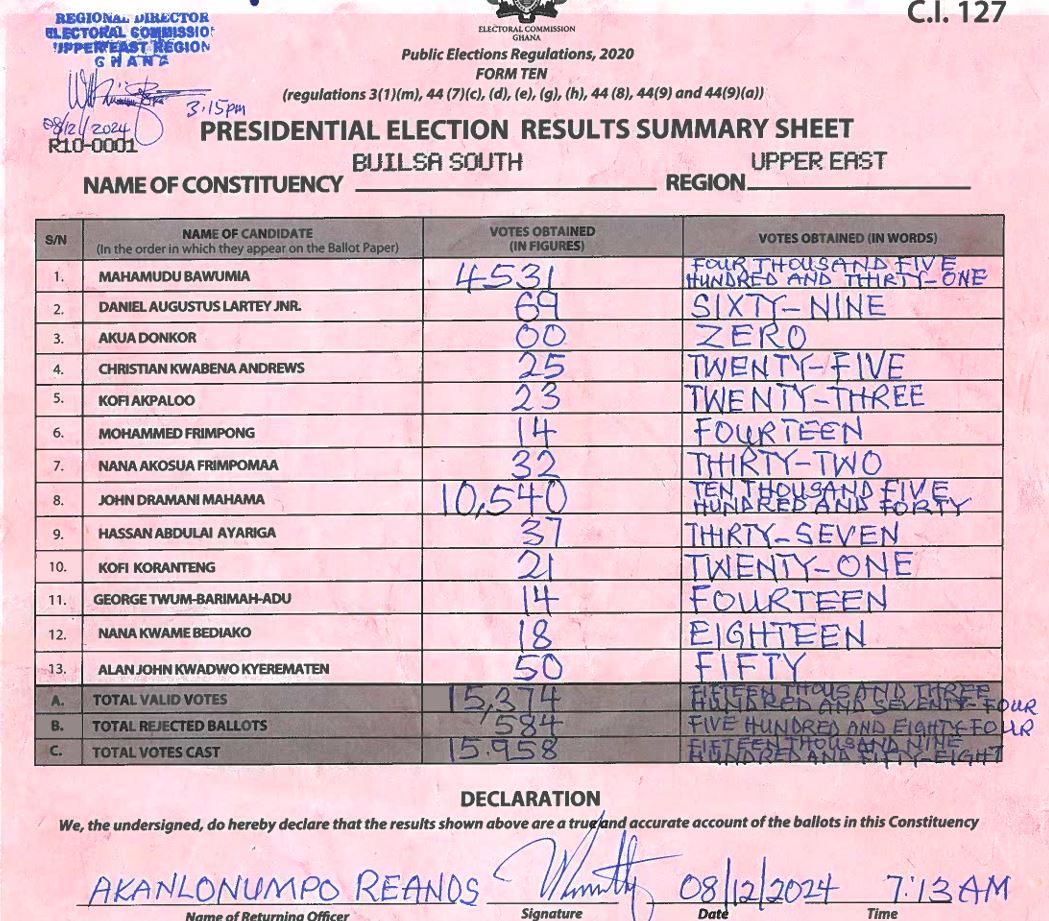 C.I. 127
REGIONAL DIRECTOR
ELECTORAL COMMISSION
UPPER EAST REGION
GHANA
3:15pm
08/12/2024
R10-0001
ELECTORAL COMMISSION
GHANA
Public Elections Regulations, 2020
FORM TEN
(regulations 3(1)(m), 44 (7)(c), (d), (e), (g), (h), 44 (8), 44(9) and 44(9)(a))
PRESIDENTIAL ELECTION RESULTS SUMMARY SHEET
NAME OF CONSTITUENCY BUILSA SOUTH REGION UPPER EAST
S/N NAME OF CANDIDATE (In the order in which they appear on the Ballot Paper) VOTES OBTAINED (IN FIGURES) VOTES OBTAINED (IN WORDS)
1. MAHAMUDU BAWUMIA 4531 FOUR THOUSAND FIVE HUNDRED AND THIRTY-ONE
2. DANIEL AUGUSTUS LARTEY JNR. 69 SIXTY-NINE
3. AKUA DONKOR 00 ZERO
4. CHRISTIAN KWABENA ANDREWS 25 TWENTY-FIVE
5. KOFI AKPALOO 23 TWENTY-THREE
6. MOHAMMED FRIMPONG 14 FOURTEEN
7. NANA AKOSUA FRIMPOMAA 32 THIRTY-TWO
8. JOHN DRAMANI MAHAMA 10,540 TEN THOUSAND FIVE HUNDRED AND FORTY
9. HASSAN ABDULAI AYARIGA 37 THIRTY-SEVEN
10. KOFI KORANTENG 21 TWENTY-ONE
11. GEORGE TWUM-BARIMAH-ADU 14 FOURTEEN
12. NANA KWAME BEDIAKO 18 EIGHTEEN
13. ALAN JOHN KWADWO KYEREMATEN 50 FIFTY
A. TOTAL VALID VOTES 15,374 FIFTEEN THOUSAND THREE HUNDRED AND SEVENTY-FOUR
B. TOTAL REJECTED BALLOTS 584 FIVE HUNDRED AND EIGHTY-FOUR
C. TOTAL VOTES CAST 15.958 FIFTEEN THOUSAND NINE HUNDRED AND FIFTY-EIGHT
DECLARATION
We, the undersigned, do hereby declare that the results shown above are a true and accurate account of the ballots in this Constituency
AKANLONUMPO REANDS 08/12/2024 7:13 AM
Name of Returning Officer Signature Date Time